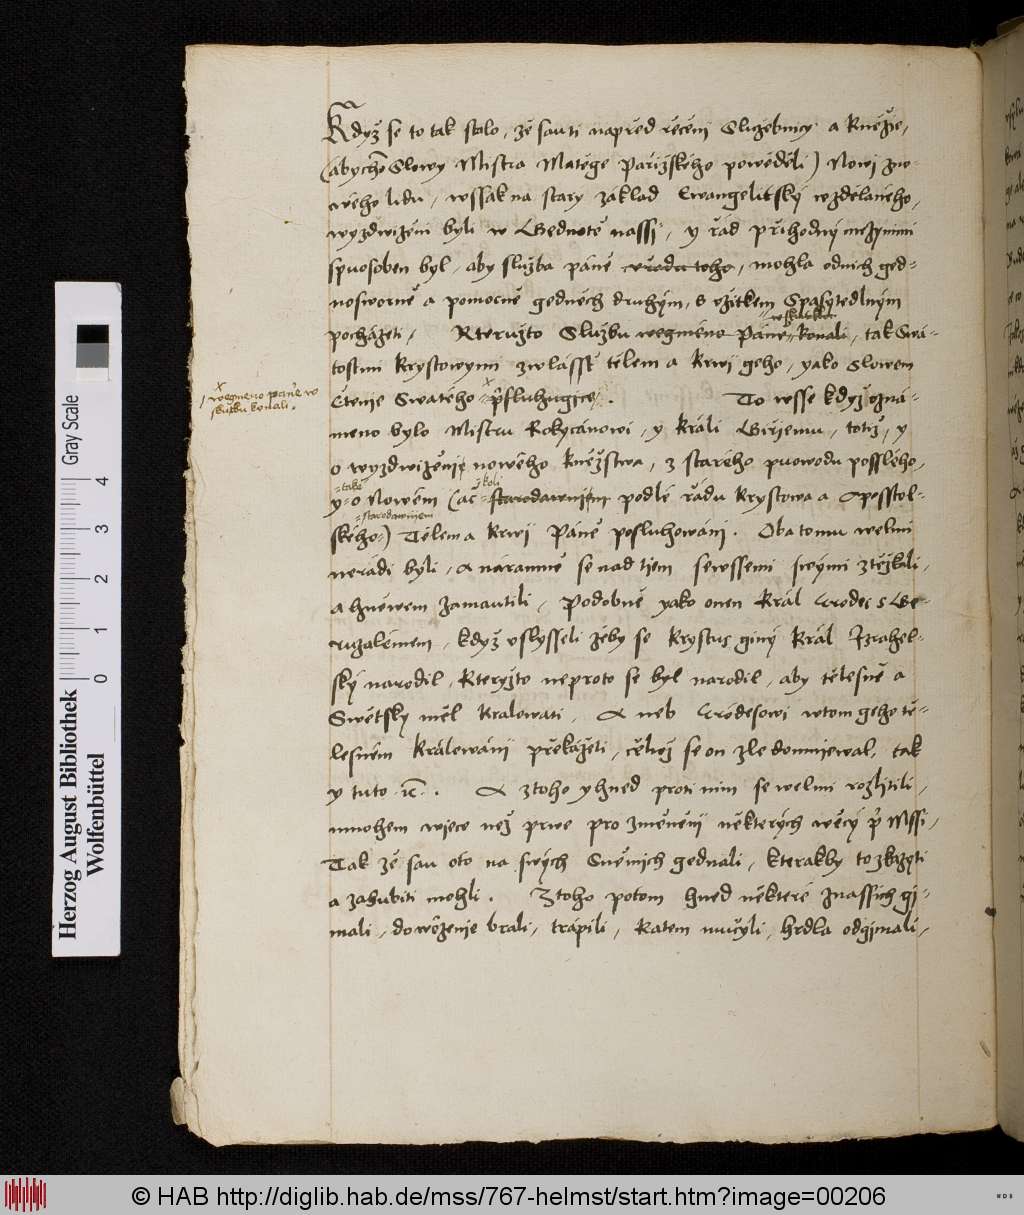 Když se to tak stalo, že sau ti napřed řečení Služebnicy a Kněžie,
(abychõ Slowy Mistra Matěge Pařížského powěděli) Nowi z no-
wého lidu, wssak na starý základ Ewangelitský wzdělaného,
wyzdwiženi byli w Gednotě nassí, y řád přihodný mezy nimi
spuosoben byl, aby služba páně w řadu toho, mohla od nich ged-
nosworně a pomocně gedněch druhým, s vžitkem Spasytedlným
pocházeti, Kteružto Službu wegméno Páně w skutku konali, tak Swá-
tostmi Krystowými zwlásstˇ tělem a krwí geho, yako slowem
Čtenie Swatého přisluhugíce. To wsse když ozná-
meno bylo Mistru Rokycanowi, y králi Giřjemu, totiž, y
o wyzdwiženij nowého Kněžstwa, z starého puowodu posslého,
také
y o Nowém (ač koli starodawnijm podlé řádu Krystowa a Aposstol-
starodawnijem
ského) Tělem a Krwij Páně posluhowáni. Oba tomu welmi
neradi byli, a náramně se nad tiem sewssemi swými ztěžkali,
a hněwem zamautili, Podobně yako onen Král Erodes s Ge-
ruzalémem, když vslysseli žeby se Krystus giný Král Izrahel-
ský narodil, Kteryžto neproto se byl narodil, aby tělesně a
Swětsky měl Kralowati, A neb Erodesowi w tom geho tě-
lesném Králowánij překážeti, cěhož se on zle domnijewal, tak
y tuto ꝛc. A z toho y hned proti nim se welmi rozlítili,
mnohem wjece než prwe pro změněnij některých wěcý při Mssi,
Tak že sau oto na swých Sněmich gednali, kterakby to zkazyti
a zahubiti mohli. Z toho potom hned některé z nassich gj-
mali, do wěženje brali, trápili, Katem mučyli, hrdla odgjmali,
wegmeno páně w
skutku konali.
Herzog August Bibliothek
Wolfenbüttel
Gray Scale
0 1 2 3 4
© HAB http://diglib.hab.de/mss/767-helmst/start.htm?image=00206
WDB